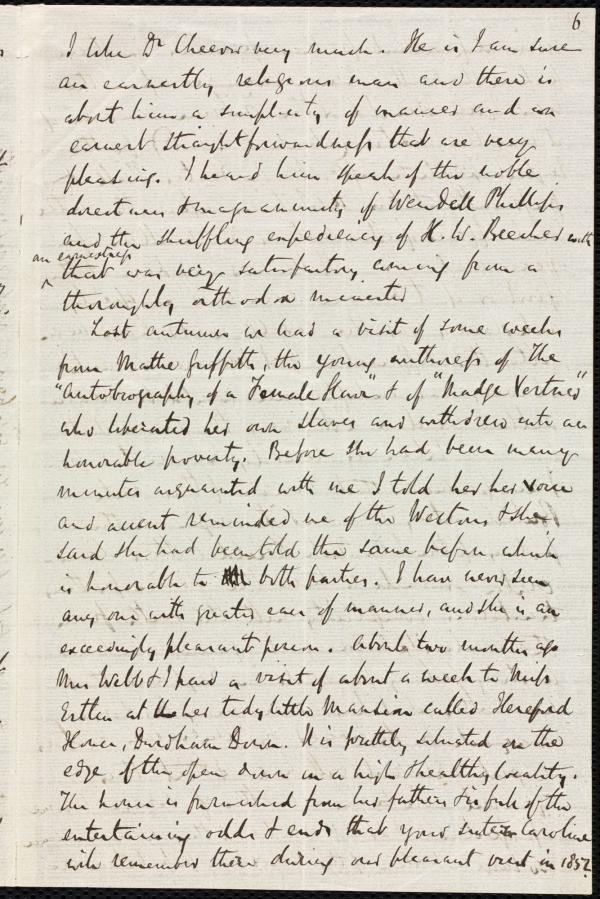 6
I like Dr Cheever very much. He is I am sure
an earnestly religious man and there is
about him a simplicity of manner and an
earnest straightforwardness that are very
pleasing. I heard him speak of the noble
directness & magnanimity of Wendell Phillips
and the shuffling expediency of H. W. Beecher with
an earnestness
that was very satisfactory coming from a
thoroughly orthodox minister
Last autumn we had a visit of some weeks
from Mattie Griffith, the young authoress of The
"Autobiography of a Female Slave" & of "Madge Vertner"
who liberated her own slaves and withdrew into an
honorable poverty. Before she had been many
minutes acquainted with me I told her her voice
and accent reminded me of the Westons & she
said she had been told the same before, which
is honorable to both parties. I have never seen
any one with greater ease of manner, and she is an
exceedingly pleasant person. About two months ago
Mrs Webb & I paid a visit of about a week to Miss
Estlin at her tidy little mansion called Hereford
House, Durdham Down. It is prettily situated on the
edge of the open down in a high & healthy locality.
The house is furnished from her fathers & is full of the
entertaining odds & ends that your sister Caroline
will remember there during our pleasant visit in 1852.